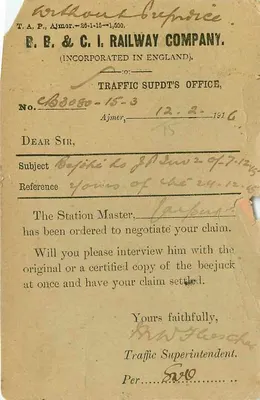 Without Prejudice.
T. A. P., Ajmer.—26-1-15—1,500.
B. B. & C. I. RAILWAY COMPANY.
(INCORPORATED IN ENGLAND).
TRAFFIC SUPDT'S OFFICE,
No. CB3080-15-3
Ajmer, 12.2. 1916
DEAR SIR,
Subject of 7-12-15
Reference Yours of the 24-12-15
The Station Master,
has been ordered to negotiate your claim.
Will you please interview him with the
original or a certified copy of the beejuck
at once and have your claim settled.
Yours faithfully,
Traffic Superintendent.
Per